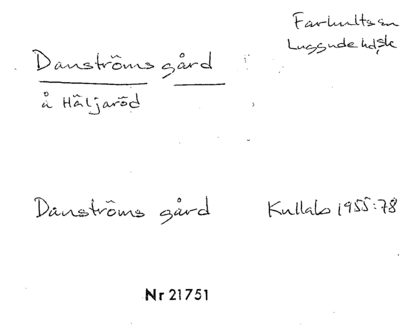 Farhults sn
Luggude hd, Sk
Danströms gård
å Häljaröd
Danströms gård
Kullabo 1955:78
Nr 21751